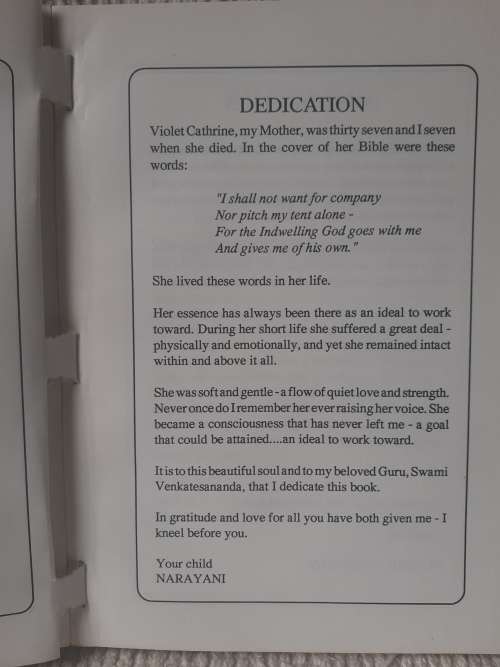 DEDICATION
Violet Cathrine, my Mother, was thirty seven and I seven
when she died. In the cover of her Bible were these
words:
"I shall not want for company
Nor pitch my tent alone -
For the Indwelling God goes with me
And gives me of his own."
She lived these words in her life.
Her essence has always been there as an ideal to work
toward. During her short life she suffered a great deal -
physically and emotionally, and yet she remained intact
within and above it all.
She was soft and gentle - a flow of quiet love and strength.
Never once do I remember her ever raising her voice. She
became a consciousness that has never left me - a goal
that could be attained....an ideal to work toward.
It is to this beautiful soul and to my beloved Guru, Swami
Venkatesananda, that I dedicate this book.
In gratitude and love for all you have both given me - I
kneel before you.
Your child
NARAYANI